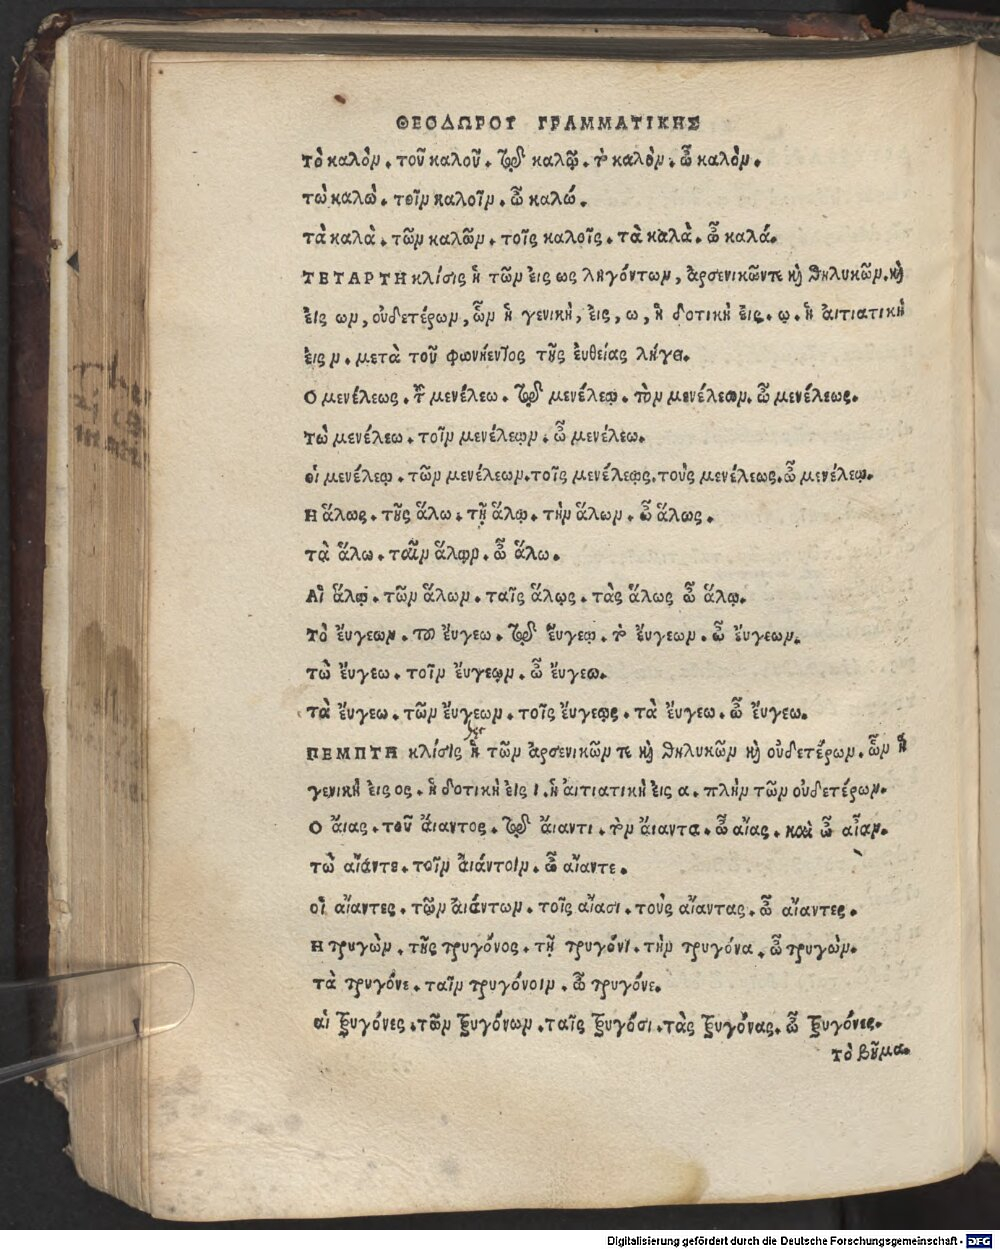 ΘΕΟΔΩΡΟΥ ΓΡΑΜΜΑΤΙΚΗΣ
Τὸ καλὸν. τοῦ καλοῦ. τῷ καλῷ. τὸ καλὸν. ὦ καλὸν.
τὼ καλὼ. τοῖν καλοῖν. ὦ καλώ.
τὰ καλὰ. τῶν καλῶν. τοῖς καλοῖς. τὰ καλὰ. ὦ καλά.
ΤΕΤΑΡΤΗ κλίσις ἡ τῶν εἰς ως ληγόντων, ἀρσενικῶντε καὶ θηλυκῶν. καὶ
εἰς ων, οὐδετέρων, ὧν ἡ γενικὴ, εἰς, ω, ἡ δοτικὴ εἰς. ῳ. ἡ αἰτιατικὴ
εἰς ν. μετὰ τοῦ φωνήεντος τῆς ἐυθείας λήγει.
Ο μενέλεως. τοῦ μενέλεω. τῷ μενέλεῳ. τὸν μενέλεων. ὦ μενέλεως.
τὼ μενέλεω. τοῖν μενέλεῳν. ὦ μενέλεω.
οἱ μενέλεῳ. τῶν μενέλεων. τοῖς μενέλεῳς. τοὺς μενέλεως. ὦ μενέλεῳ.
Η ἅλως. τῆς ἅλω. τῇ ἅλῳ. τὴν ἅλων. ὦ ἅλως.
τὰ ἅλω. ταῖν ἅλῳν. ὦ ἅλω.
Αἱ ἅλῳ. τῶν ἅλων. ταῖς ἅλῳς. τὰς ἅλως ὦ ἅλῳ.
Τὸ ἔυγεων. τοῦ ἔυγεω. τῷ ἔυγεῳ. τὸ ἔυγεων. ὦ ἔυγεων.
τὼ ἔυγεω. τοῖν ἔυγεῳν. ὦ ἔυγεω.
τὰ ἔυγεω. τῶν ἔυγεων. τοῖς ἔυγεῳς. τὰ ἔυγεω. ὦ ἔυγεω.
ΠΕΜΠΤΗ κλίσις ἡ τῶν ἀρσενικῶν τε καὶ θηλυκῶν καὶ οὐδετέρων. ὧν ἡ
γενικὴ εἰς ος. ἡ δοτικὴ εἰς ι. ἡ αἰτιατικὴ εἰς α. πλὴν τῶν οὐδετέρων.
Ο ἄιας. τοῦ ἄιαντος. τῷ ἄιαντι. τὸν ἄιαντα. ὦ αἶας. καὶ ὦ αἶαν.
τὼ αἴαντε. τοῖν ἀιάντοιν. ὦ αἴαντε.
οἱ αἴαντες. τῶν ἀιάντων. τοῖς αἴασι. τοὺς αἴαντας. ὦ αἴαντες.
Η τρυγὼν. τῆς τρυγόνος. τῇ τρυγόνι. τὴν τρυγόνα. ὦ τρυγὼν.
τὰ τρυγόνε. ταῖν τρυγόνοιν. ὦ τρυγόνε.
αἱ τρυγόνες. τῶν τρυγόνων. ταῖς τρυγόσι. τὰς τρυγόνας. ὦ τρυγόνες.
τὸ βῆμα.
Digitalisierung gefördert durch die Deutsche Forschungsgemeinschaft - DFG